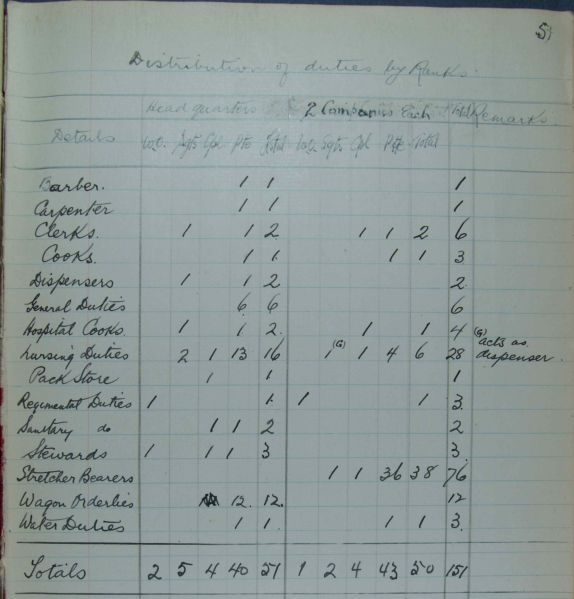 51
Distribution of duties by Ranks.
Headquarters 2 Companies Each Total Remarks.
Details W.O. Sgts Cpl Pte Total W.O. Sgts Cpl Pte Total
Barber. 1 1 1
Carpenter 1 1 1
Clerks. 1 1 2 1 1 2 6
Cooks. 1 1 1 1 3
Dispensers 1 1 2 2
General Duties 6 6 6
Hospital Cooks. 1 1 2 1 1 4 (G) acts as
Nursing Duties 2 1 13 16 1 (G) 1 4 6 28 dispenser.
Pack Store 1 1 1
Regimental Duties 1 1 1 1 3
Sanitary do 1 1 2 2
Stewards 1 1 1 3 3
Stretcher Bearers 1 1 36 38 76
Wagon Orderlies 12 12 12
Water Duties 1 1 1 1 3
Totals 2 5 4 40 51 1 2 4 43 50 151